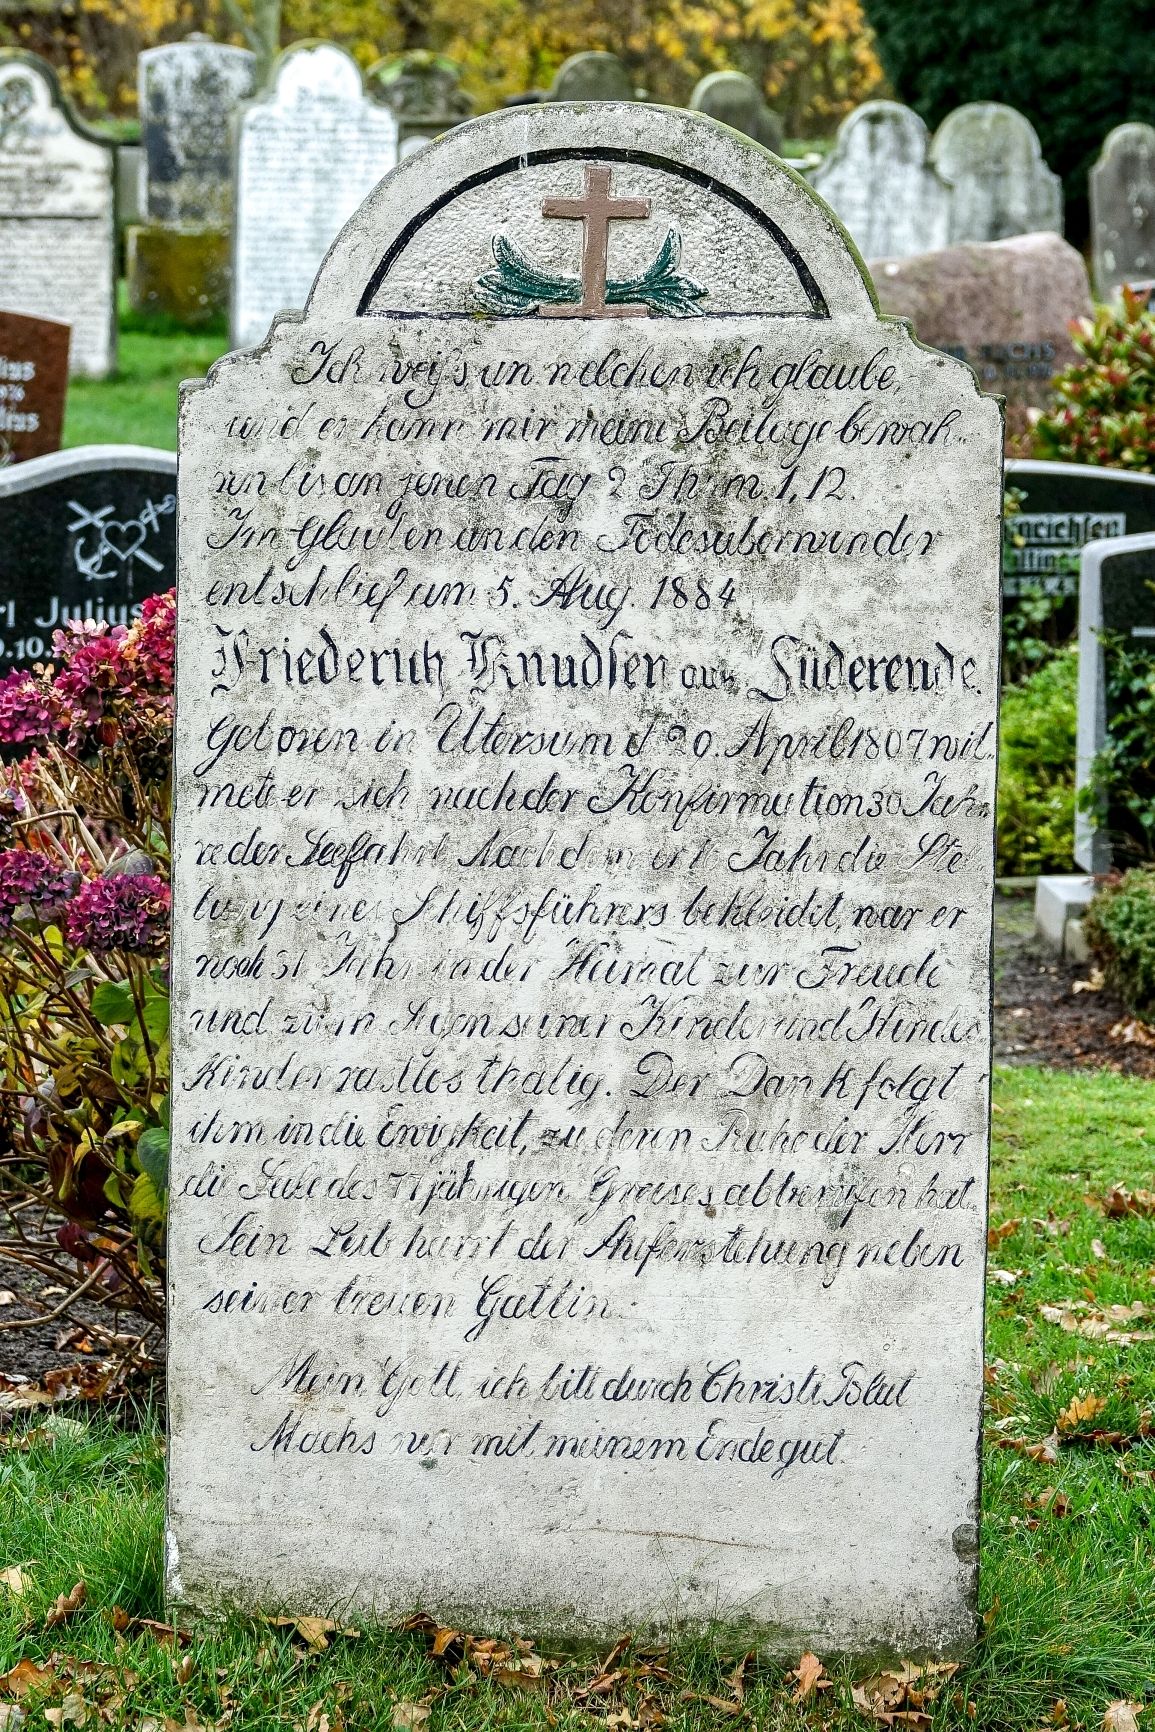 Ich weiſs an welchen ich glaube,
und er kann mir meine Beilage bewah-
ren bis an jenen Tag 2 Thim. 1, 12.
Im Glauben an den Todesüberwinder
entschlief am 5. Aug. 1884
Friederich Knudſen aus Süderende.
Geboren in Utersum d 20. April 1807 wid-
mete er sich nach der Konfirmation 30 Jah-
re der Seefahrt Nachdem er Jahr die Stel
lung eines Schiffsführers bekleidet, war er
noch 31 Jahr in der Heimat zur Freude
und zum Segen seiner Kinder und Kindes
Kinder rastlos thatig. Der Dank folgt
ihm in die Ewigkeit, zu deren Ruhe der Herr
die Sele des 77 jährigen Greises abberufen hat.
Sein Leib harrt der Auferstehung neben
seiner treuen Gattin.
Mein Gott, ich bitt durch Christi Blut
Machs nur mit meinem Ende gut.
Julius